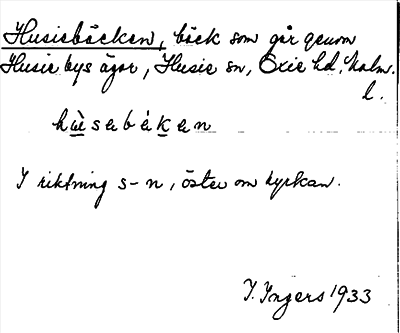 Husiebäcken, bäck som går genom
Husie bys ägor, Husie sn, Oxie hd, Malm.
l.
hùsabákan
I riktning s-n, öster om kyrkan.
I. Ingers 1933